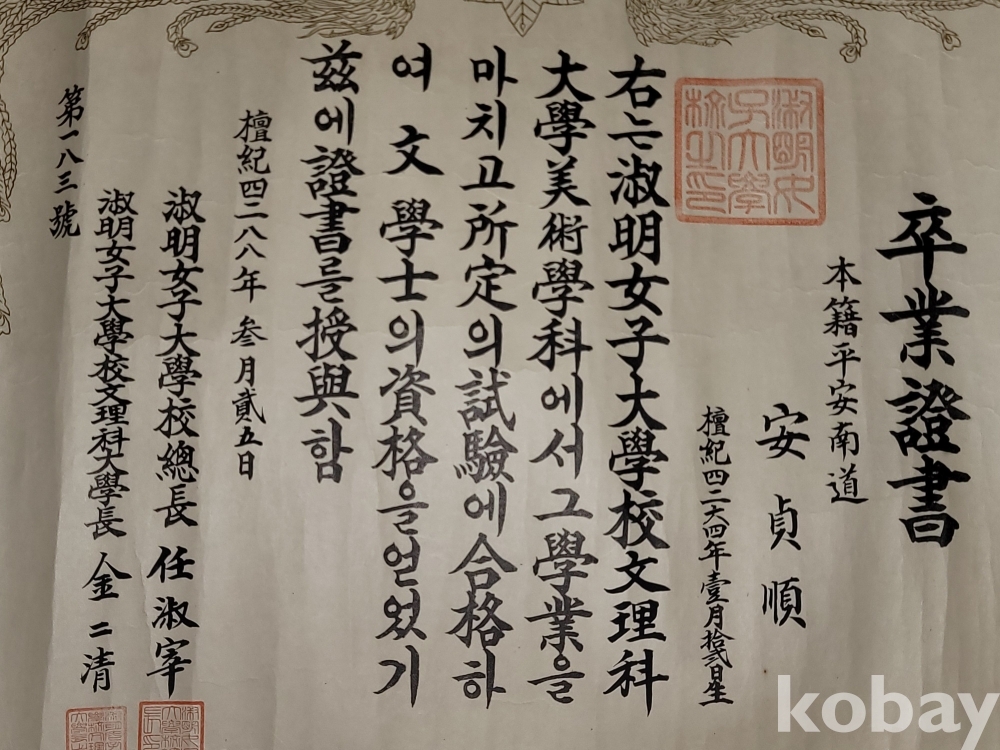 卒業證書
本籍平安南道
安貞順
檀紀四二六四年壹月拾貳日生
右는淑明女子大學校文理科
大學美術學科에서그學業을
마치고所定의試驗에合格하
여文學士의資格을얻었기
玆에證書를授與함
檀紀四二八八年 叁月貳五日
淑明女子大學校總長 任淑宰
淑明女子大學校文理科大學長 金二清
第一八三號
淑明女子大學校之印
kobay